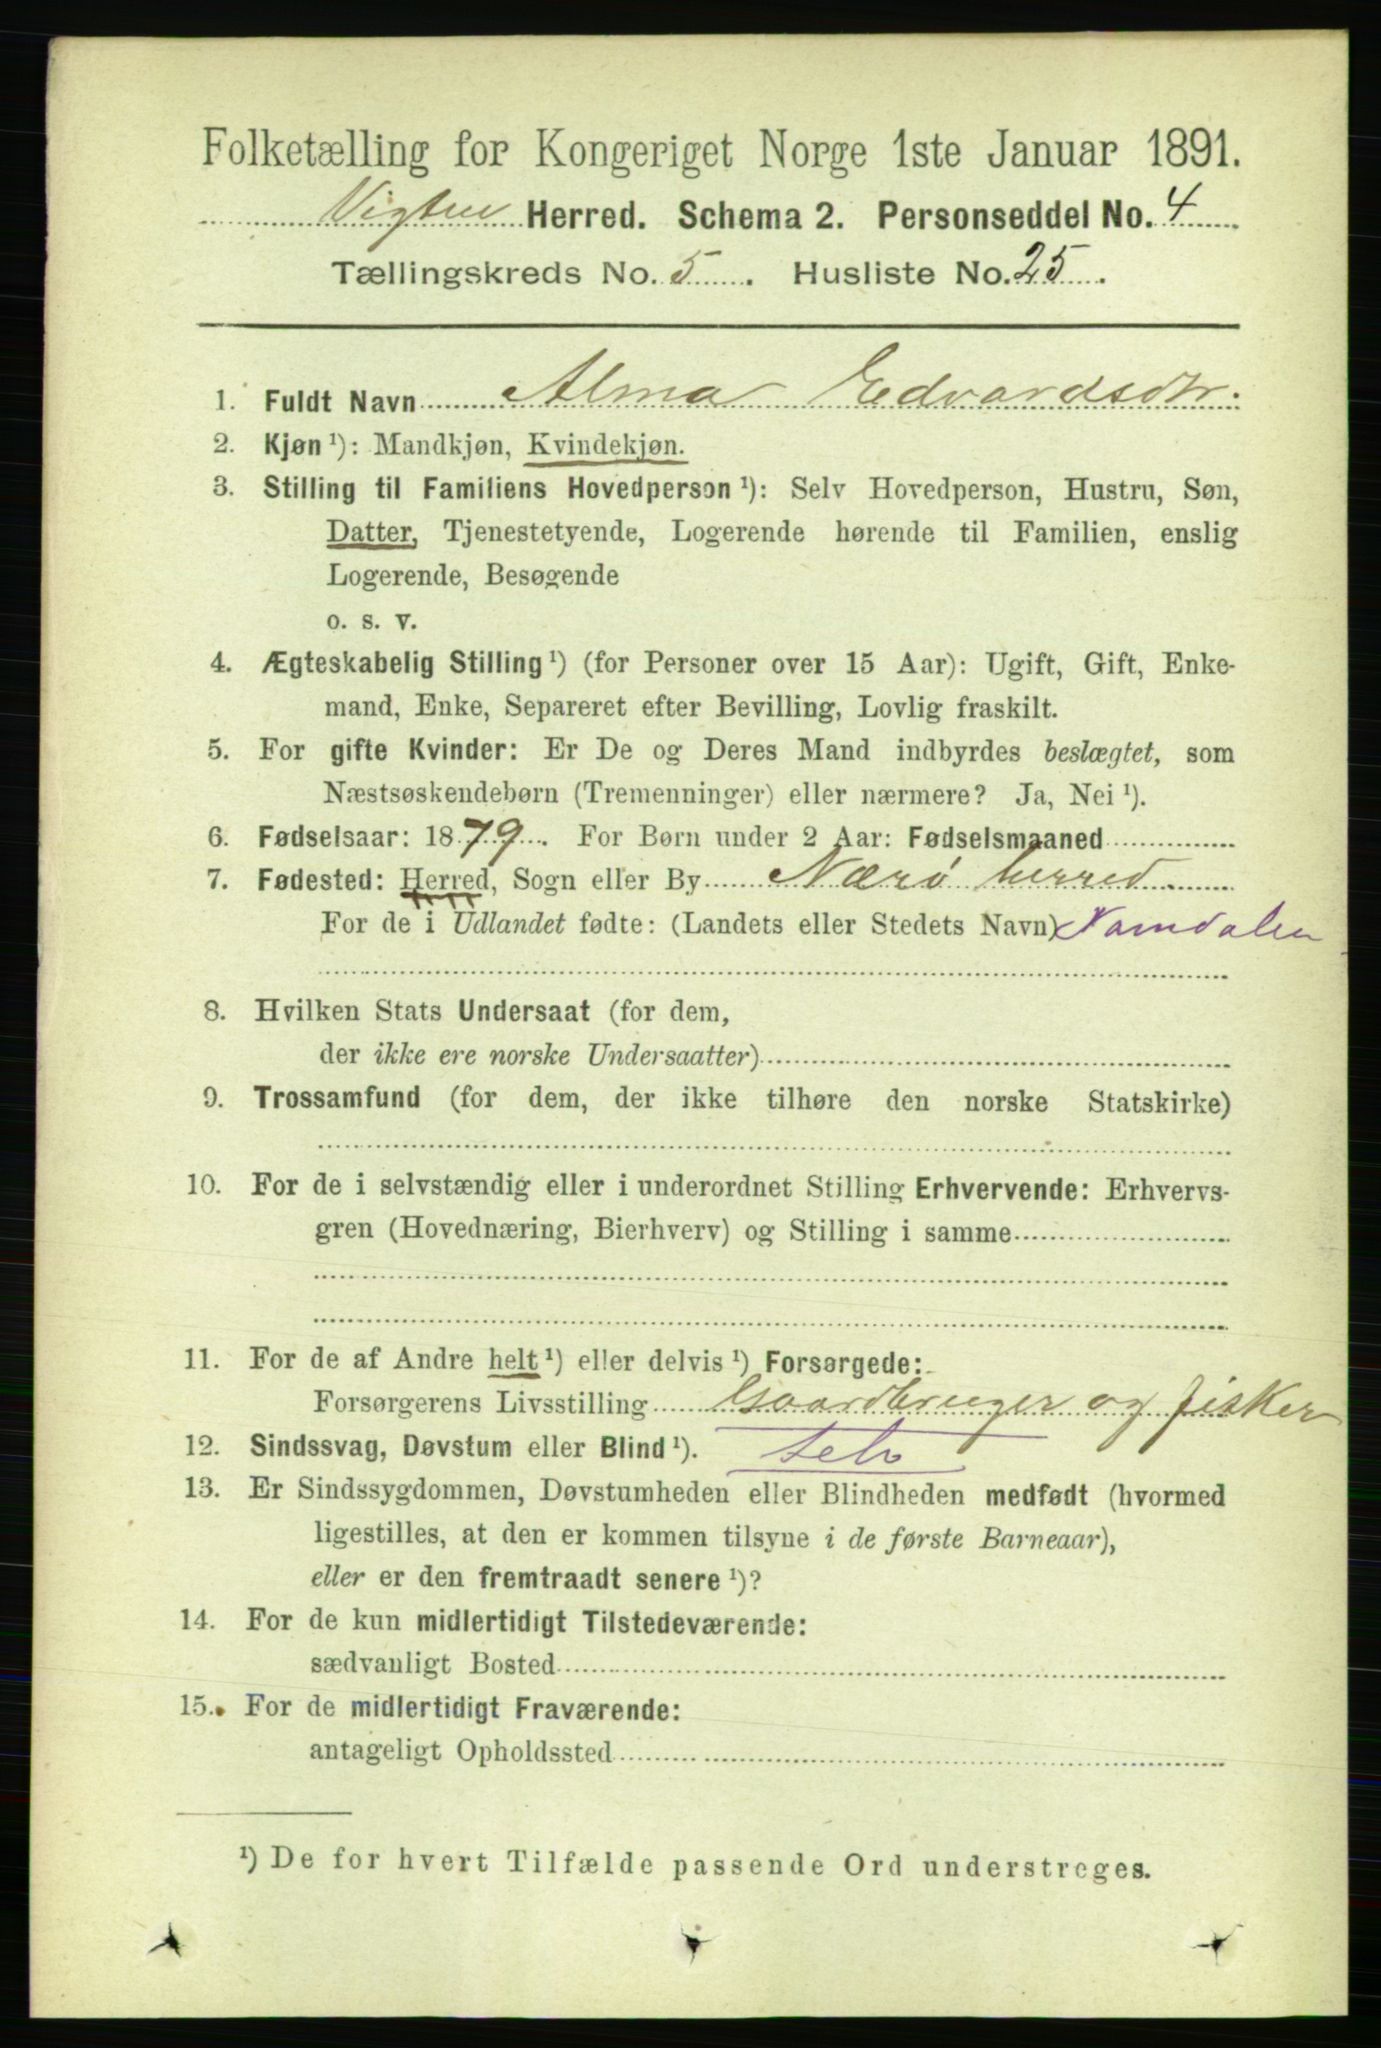 Folketælling for Kongeriget Norge 1ste Januar 1891.
Vigten Herred. Schema 2. Personseddel No. 4
Tællingskreds No. 5. Husliste No. 25.
1. Fuldt Navn Alma Edvardsdtr.
2. Kjøn ¹): Mandkjøn, Kvindekjøn.
3. Stilling til Familiens Hovedperson ¹): Selv Hovedperson, Hustru, Søn,
Datter, Tjenestetyende, Logerende hørende til Familien, enslig
Logerende, Besøgende
o. s. v.
4. Ægteskabelig Stilling ¹) (for Personer over 15 Aar): Ugift, Gift, Enke-
mand, Enke, Separeret efter Bevilling, Lovlig fraskilt.
5. For gifte Kvinder: Er De og Deres Mand indbyrdes beslægtet, som
Næstsøskendebørn (Tremenninger) eller nærmere? Ja, Nei ¹).
6. Fødselsaar: 1879. For Børn under 2 Aar: Fødselsmaaned
7. Fødested: Herred, Sogn eller By Nærø herred
For de i Udlandet fødte: (Landets eller Stedets Navn) Namdalen
8. Hvilken Stats Undersaat (for dem,
der ikke ere norske Undersaatter)
9. Trossamfund (for dem, der ikke tilhøre den norske Statskirke)
10. For de i selvstændig eller i underordnet Stilling Erhvervende: Erhvervs-
gren (Hovednæring, Bierhverv) og Stilling i samme
11. For de af Andre helt ¹) eller delvis ¹) Forsørgede:
Forsørgerens Livsstilling Gaardbruger og fisker
12. Sindssvag, Døvstum eller Blind ¹). Selv
13. Er Sindssygdommen, Døvstumheden eller Blindheden medfødt (hvormed
ligestilles, at den er kommen tilsyne i de første Barneaar),
eller er den fremtraadt senere ¹)?
14. For de kun midlertidigt Tilstedeværende:
sædvanligt Bosted
15. For de midlertidigt Fraværende:
antageligt Opholdssted
¹) De for hvert Tilfælde passende Ord understreges.